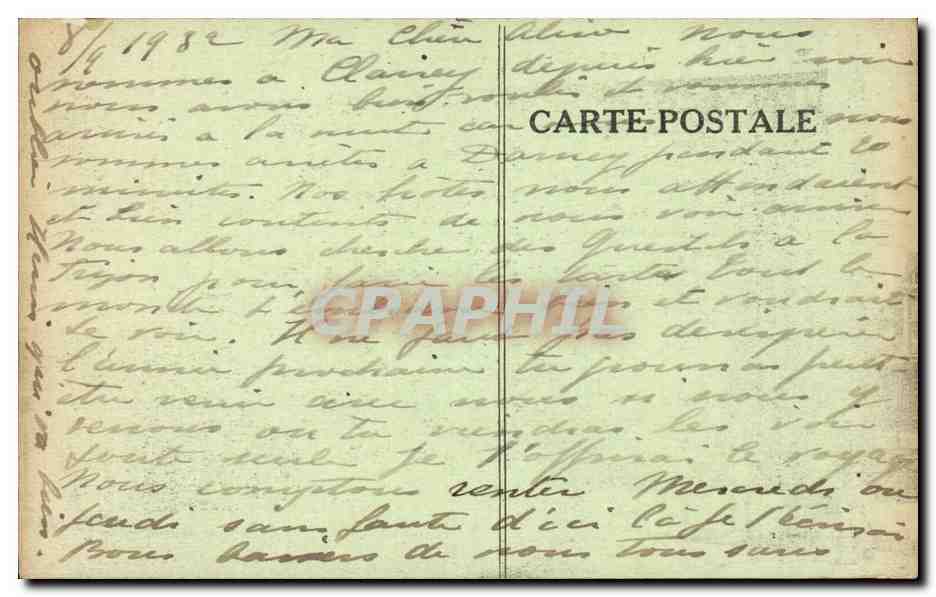 8/9 1932 Ma Chère Aline nous
sommes a Clairey depuis hier soir
nous avons bien roulés et sommes
arrivés a la nuit car nous nous
CARTE-POSTALE
sommes arrêtés a Darney pendant 20
minutes. Nos hôtes nous attendaient
et bien contents de nous voir arriver
Nous allons des a la
pour faire les tartes tout le
monde pas et voudrait
te voir. Il ne faut pas desespérer
l'année prochaine tu pourras peut
etre venir avec nous si nous y
venons ou tu viendras les voir
toute seule je t'offrirai le voyage
Nous comptons rentrer Mercredi ou
jeudi sans faute d'ici là je t'écrirai
Bons baisers de nous tous sans
oublier qui va bien.
CPAPHIL